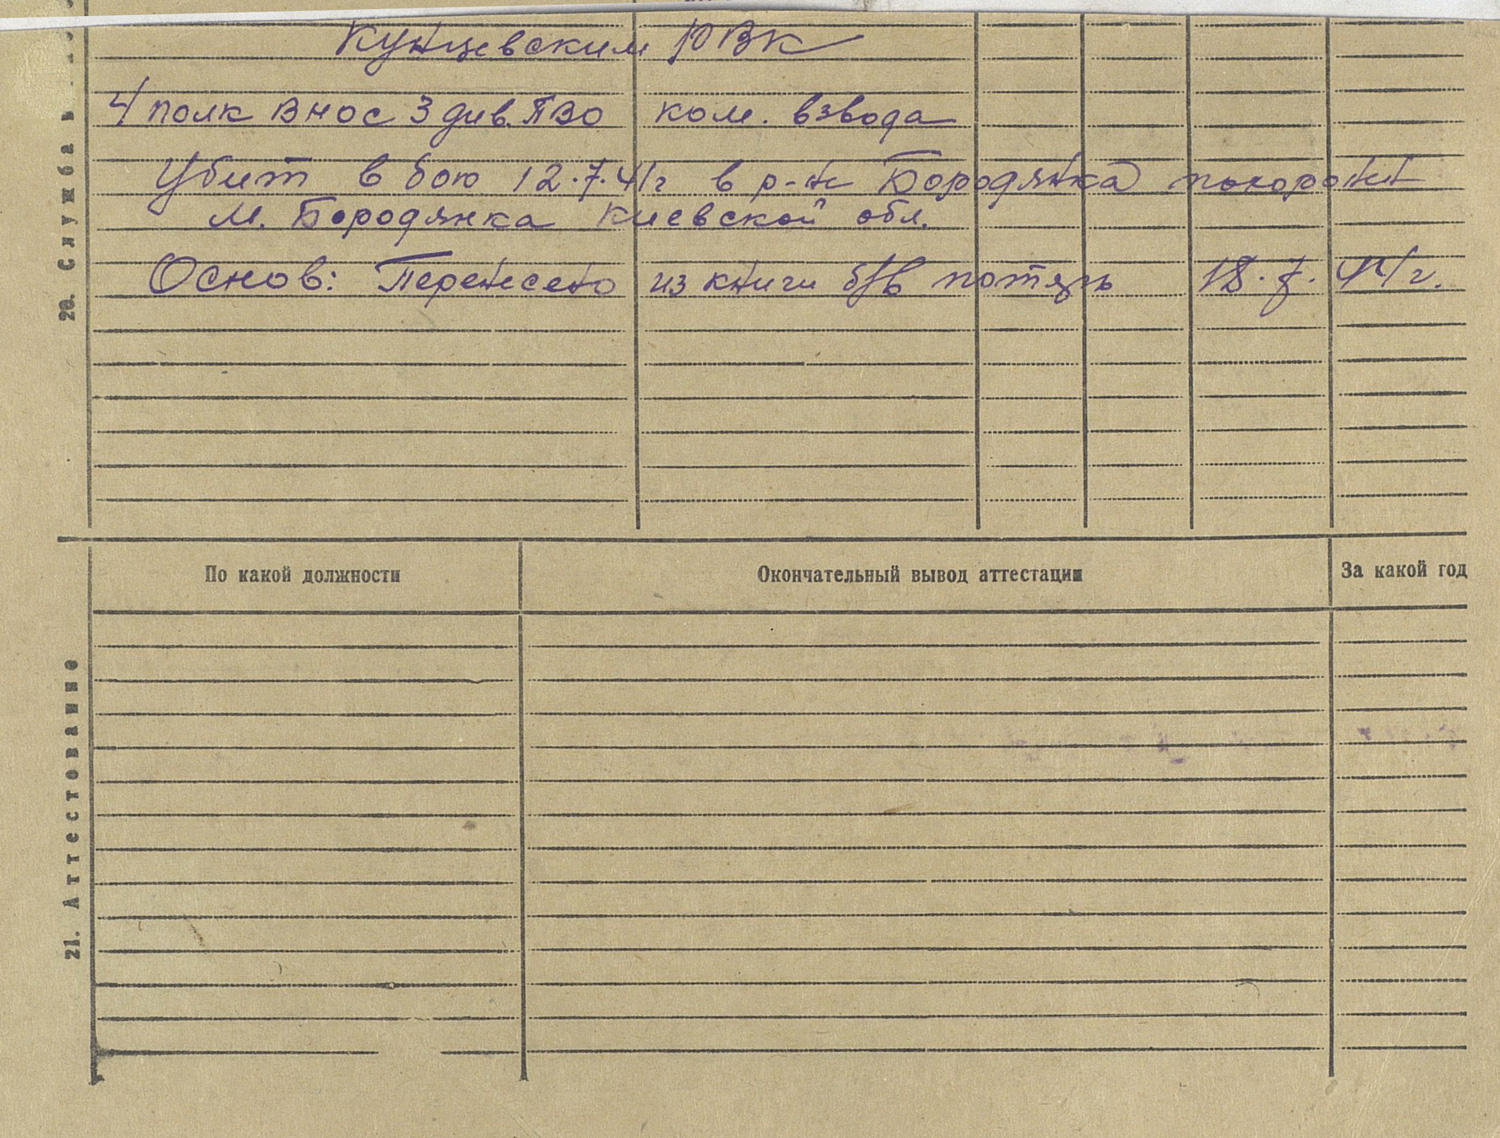 Кунцевским РВК
4 полк ВНОС 3 див. ПВО ком. взвода
Убит в бою 12.7.41г в р-не Бородянка похоронен
м. Бородянка Киевской обл.
Основ: Перенесено из книги б/в потерь 18.7.41г.
20. Служба в
По какой должности
Окончательный вывод аттестации
За какой год
21. Аттестование